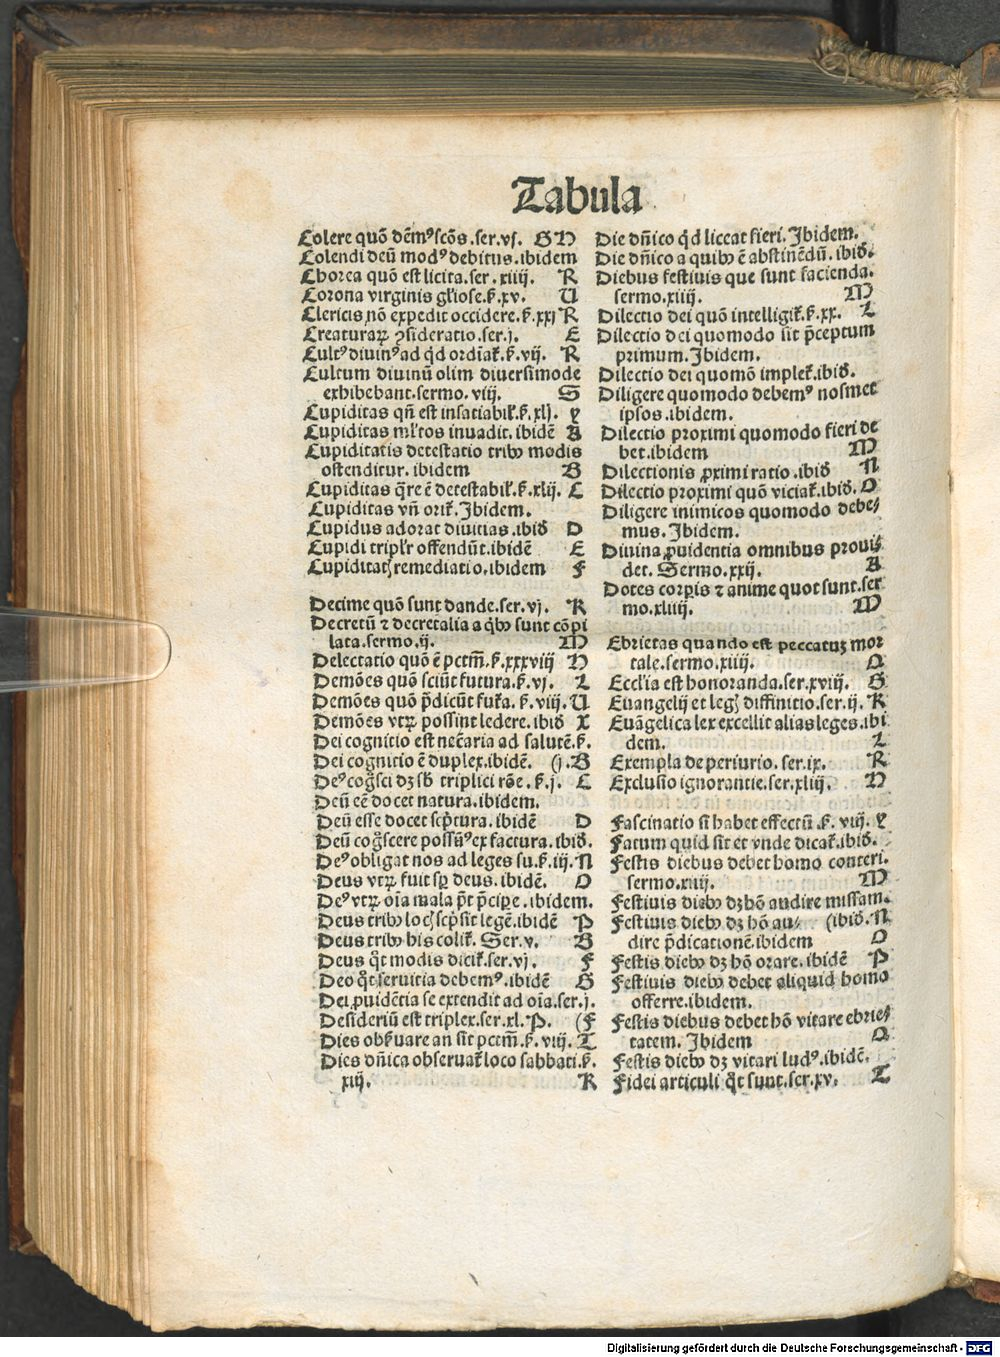 Tabula
Colere quō dēmꝰ scōs.ser.vj. G H
Colendi deū modꝰ debitus.ibidem
Chorea quō est licita.ser.xiiij. R
Corona virginis gl̓iose.ẜ.xv. U
Clericis nō expedit occidere.ẜ.xxj R
Creaturaꝝ ꝯsideratio.ser.j. E
Cultꝰ diuinꝰ ad qd ordīat̄.ẜ.vij. R
Cultum diuinū olim diuersimode
exhibebant.sermo.viij. S
Cupiditas qn̄ est insatiabil̓.ẜ.xlj. Y
Cupiditas ml̓tos inuadit.ibidē A
Cupiditatis detestatio tribꝰ modis
ostenditur.ibidem B
Cupiditas q̄re ē detestabil̓.ẜ.xlij. C
Cupiditas vn̄ orit̄.Ibidem.
Cupidus adorat diuitias.ibid̓ D
Cupidi tripl̓r offendūt.ibidē E
Cupiditatꝭ remediatio.ibidem F
Decime quō sunt dande.ser.vj. R
Decretū ⁊ decretalia a qbꝰ sunt cōpi
lata.sermo.ij. M
Delectatio quō ē pctm̄.ẜ.xxxviij H
Demōes quō sciūt futura.ẜ.vj. L
Demōes quō p̄dicūt fut̄a.ẜ.viij. U
Demōes vtꝝ possint ledere.ibid̓ X
Dei cognitio est nec̄aria ad salutē.ẜ.
Dei cognitio ē duplex.ibidē. (j. B
Deꝰ cog̓sci dꝫ sb̓ triplici rōe.ẜ.j. C
Deū eē docet natura.ibidem.
Deū esse docet scp̄tura.ibidē D
Deū cog̓scere possumꝰ ex factura.ibid̓.
Deꝰ obligat nos ad leges su.ẜ.iij. N
Deus vtꝝ fuit sp̄ deus.ibidē. O
Deꝰ vtꝝ oīa mala p̄t p̄cipe.ibidem.
Deus tribꝰ locꝭ scp̄sit legē.ibidē P
Deus tribꝰ his colit̄.Ser.v. B
Deus qt̄ modis dicit̄.ser.vj. F
Deo qt̄ seruitia debemꝰ.ibidē G
Dei ꝓuidētia se extendit ad oīa.ser.j.
Desideriū est triplex.ser.xl.P. (F
Dies obẜuare an sit pctm̄.ẜ.viij. T
Dies dn̄ica obseruat̄ loco sabbati.ẜ.
xiij. K
Die dn̄ico qd liceat fieri.Ibidem.
Die dn̄ico a quibꝰ ē abstinēdū.ibid̓.
Diebus festiuis que sunt facienda.
sermo.xiiij. M
Dilectio dei quō intelligit̄.ẜ.xx. L
Dilectio dei quomodo sit p̄ceptum
primum.Ibidem.
Dilectio dei quomō implet̄.ibid̓.
Diligere quomodo debemꝰ nosmet
ipsos.ibidem.
Dilectio proximi quomodo fieri de
bet.ibidem M
Dilectionis ꝓximi ratio.ibid̓ N
Dilectio proximi quō viciat̄.ibid̓. O
Diligere inimicos quomodo debe⸗
mus.Ibidem.
Diuina ꝓuidentia omnibus proui⸗
det.Sermo.xxij. A
Dotes corp̄is ⁊ anime quot sunt.ser
mo.xliiij. M
Ebrietas quando est peccatuꝫ mor
tale.sermo.xiiij. Q
Eccl̓ia est honoranda.ser.xviij. G
Euangelij et legꝭ diffinitio.ser.ij. K
Euāgelica lex excellit alias leges.ibi
dem. L
Exempla de periurio.ser.ix. R
Exclusio ignorantie.ser.xliij. H
Fascinatio si habet effectū.ẜ.viij. Y
Fatum quid sit et vnde dicat̄.ibid̓.
Festis diebus debet homo conteri.
sermo.xiiij. M
Festiuis diebꝰ dꝫ hō audire missam.
Festiuis diebꝰ dꝫ hō au⸗ (ibid̓. N
dire p̄dicationē.ibidem O
Festis diebꝰ dꝫ hō orare.ibidē P
Festiuis diebꝰ debet aliquid homo
offerre.ibidem.
Festis diebus debet hō vitare ebrie⸗
tatem.Ibidem Q
Festis diebꝰ dꝫ vitari ludꝰ.ibidē.
Fidei articuli qt̄ sunt.ser.xv. T
Digitalisierung gefördert durch die Deutsche Forschungsgemeinschaft - DFG